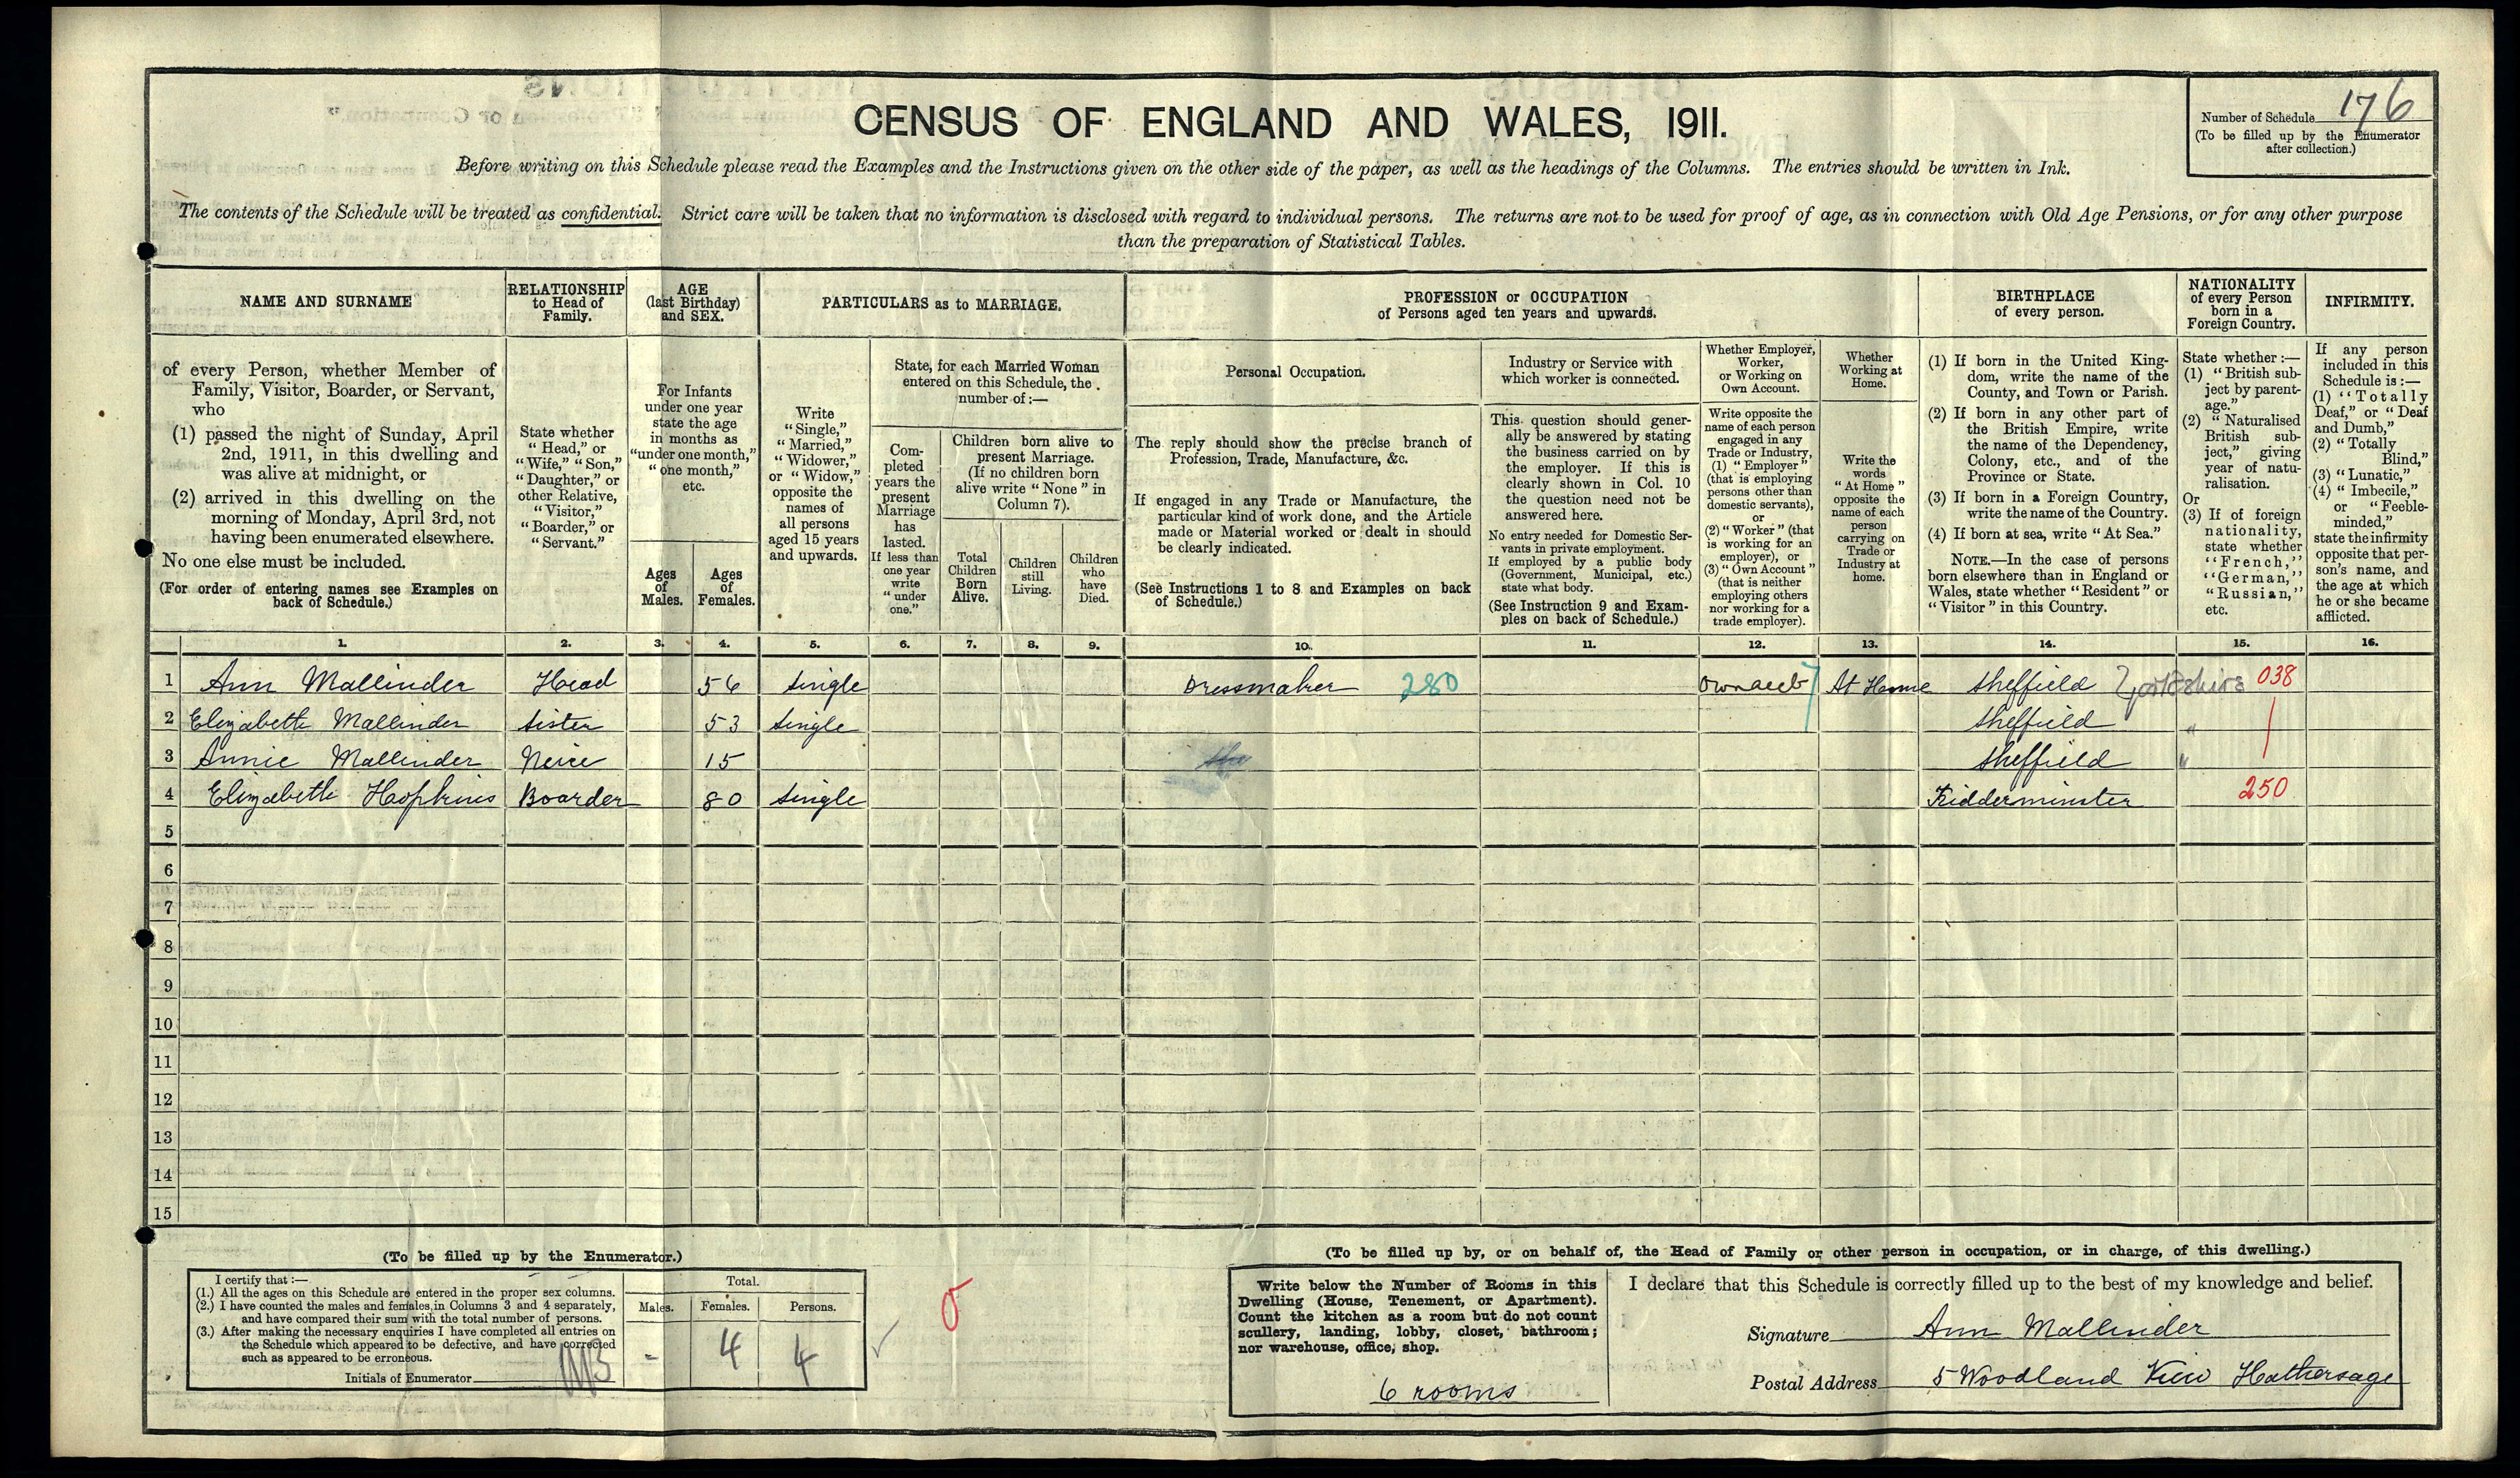 CENSUS OF ENGLAND AND WALES, 1911.
Number of Schedule 176
(To be filled up by the Enumerator
after collection.)
Before writing on this Schedule please read the Examples and the Instructions given on the other side of the paper, as well as the headings of the Columns. The entries should be written in Ink.
The contents of the Schedule will be treated as confidential. Strict care will be taken that no information is disclosed with regard to individual persons. The returns are not to be used for proof of age, as in connection with Old Age Pensions, or for any other purpose
than the preparation of Statistical Tables.
NAME AND SURNAME
of every Person, whether Member of
Family, Visitor, Boarder, or Servant,
who
(1) passed the night of Sunday, April
2nd, 1911, in this dwelling and
was alive at midnight, or
(2) arrived in this dwelling on the
morning of Monday, April 3rd, not
having been enumerated elsewhere.
No one else must be included.
(For order of entering names see Examples on
back of Schedule.)
RELATIONSHIP
to Head of
Family.
State whether
"Head," or
"Wife," "Son,"
"Daughter," or
other Relative,
"Visitor,"
"Boarder," or
"Servant."
AGE
(last Birthday)
and SEX.
For Infants
under one year
state the age
in months as
"under one month,"
"one month,"
etc.
Ages
of
Males.
Ages
of
Females.
PARTICULARS as to MARRIAGE.
Write
"Single,"
"Married,"
"Widower,"
or "Widow,"
opposite the
names of
all persons
aged 15 years
and upwards.
State, for each Married Woman
entered on this Schedule, the
number of :—
Com-
pleted
years the
present
Marriage
has
lasted.
If less than
one year
write
"under
one."
Children born alive to
present Marriage.
(If no children born
alive write "None" in
Column 7).
Total
Children
Born
Alive.
Children
still
Living.
Children
who
have
Died.
PROFESSION or OCCUPATION
of Persons aged ten years and upwards.
Personal Occupation.
The reply should show the precise branch of
Profession, Trade, Manufacture, &c.
If engaged in any Trade or Manufacture, the
particular kind of work done, and the Article
made or Material worked or dealt in should
be clearly indicated.
(See Instructions 1 to 8 and Examples on back
of Schedule.)
Industry or Service with
which worker is connected.
This question should gener-
ally be answered by stating
the business carried on by
the employer. If this is
clearly shown in Col. 10
the question need not be
answered here.
No entry needed for Domestic Ser-
vants in private employment.
If employed by a public body
(Government, Municipal, etc.)
state what body.
(See Instruction 9 and Exam-
ples on back of Schedule.)
Whether Employer,
Worker,
or Working on
Own Account.
Write opposite the
name of each person
engaged in any
Trade or Industry,
(1) "Employer"
(that is employing
persons other than
domestic servants),
or
(2) "Worker" (that
is working for an
employer), or
(3) "Own Account"
(that is neither
employing others
nor working for a
trade employer).
Whether
Working at
Home.
Write the
words
"At Home"
opposite the
name of each
person
carrying on
Trade or
Industry at
home.
BIRTHPLACE
of every person.
(1) If born in the United King-
dom, write the name of the
County, and Town or Parish.
(2) If born in any other part of
the British Empire, write
the name of the Dependency,
Colony, etc., and of the
Province or State.
(3) If born in a Foreign Country,
write the name of the Country.
(4) If born at sea, write "At Sea."
NOTE.—In the case of persons
born elsewhere than in England or
Wales, state whether "Resident" or
"Visitor" in this Country.
NATIONALITY
of every Person
born in a
Foreign Country.
State whether :—
(1) "British sub-
ject by parent-
age."
(2) "Naturalised
British sub-
ject," giving
year of natu-
ralisation.
Or
(3) If of foreign
nationality,
state whether
"French,"
"German,"
"Russian,"
etc.
INFIRMITY.
If any person
included in this
Schedule is :—
(1) "Totally
Deaf," or "Deaf
and Dumb,"
(2) "Totally
Blind,"
(3) "Lunatic,"
(4) "Imbecile,"
or "Feeble-
minded,"
state the infirmity
opposite that per-
son's name, and
the age at which
he or she became
afflicted.
1. 2. 3. 4. 5. 6. 7. 8. 9. 10. 11. 12. 13. 14. 15. 16.
1 Ann Mallinder Head 56 Single Dressmaker 280 Own acct At Home Sheffield Yorkshire 038
2 Elizabeth Mallinder Sister 53 Single Sheffield "
3 Annie Mallinder Neice 15 Sheffield "
4 Elizabeth Hopkins Boarder 80 Single Kidderminster 250
5
6
7
8
9
10
11
12
13
14
15
(To be filled up by the Enumerator.)
I certify that :—
(1.) All the ages on this Schedule are entered in the proper sex columns.
(2.) I have counted the males and females in Columns 3 and 4 separately,
and have compared their sum with the total number of persons.
(3.) After making the necessary enquiries I have completed all entries on
the Schedule which appeared to be defective, and have corrected
such as appeared to be erroneous.
Initials of Enumerator
Total.
Males. Females. Persons.
- 4 4
(To be filled up by, or on behalf of, the Head of Family or other person in occupation, or in charge, of this dwelling.)
Write below the Number of Rooms in this
Dwelling (House, Tenement, or Apartment).
Count the kitchen as a room but do not count
scullery, landing, lobby, closet, bathroom;
nor warehouse, office, shop.
6 rooms
I declare that this Schedule is correctly filled up to the best of my knowledge and belief.
Signature Ann Mallinder
Postal Address 5 Woodland View Hathersage